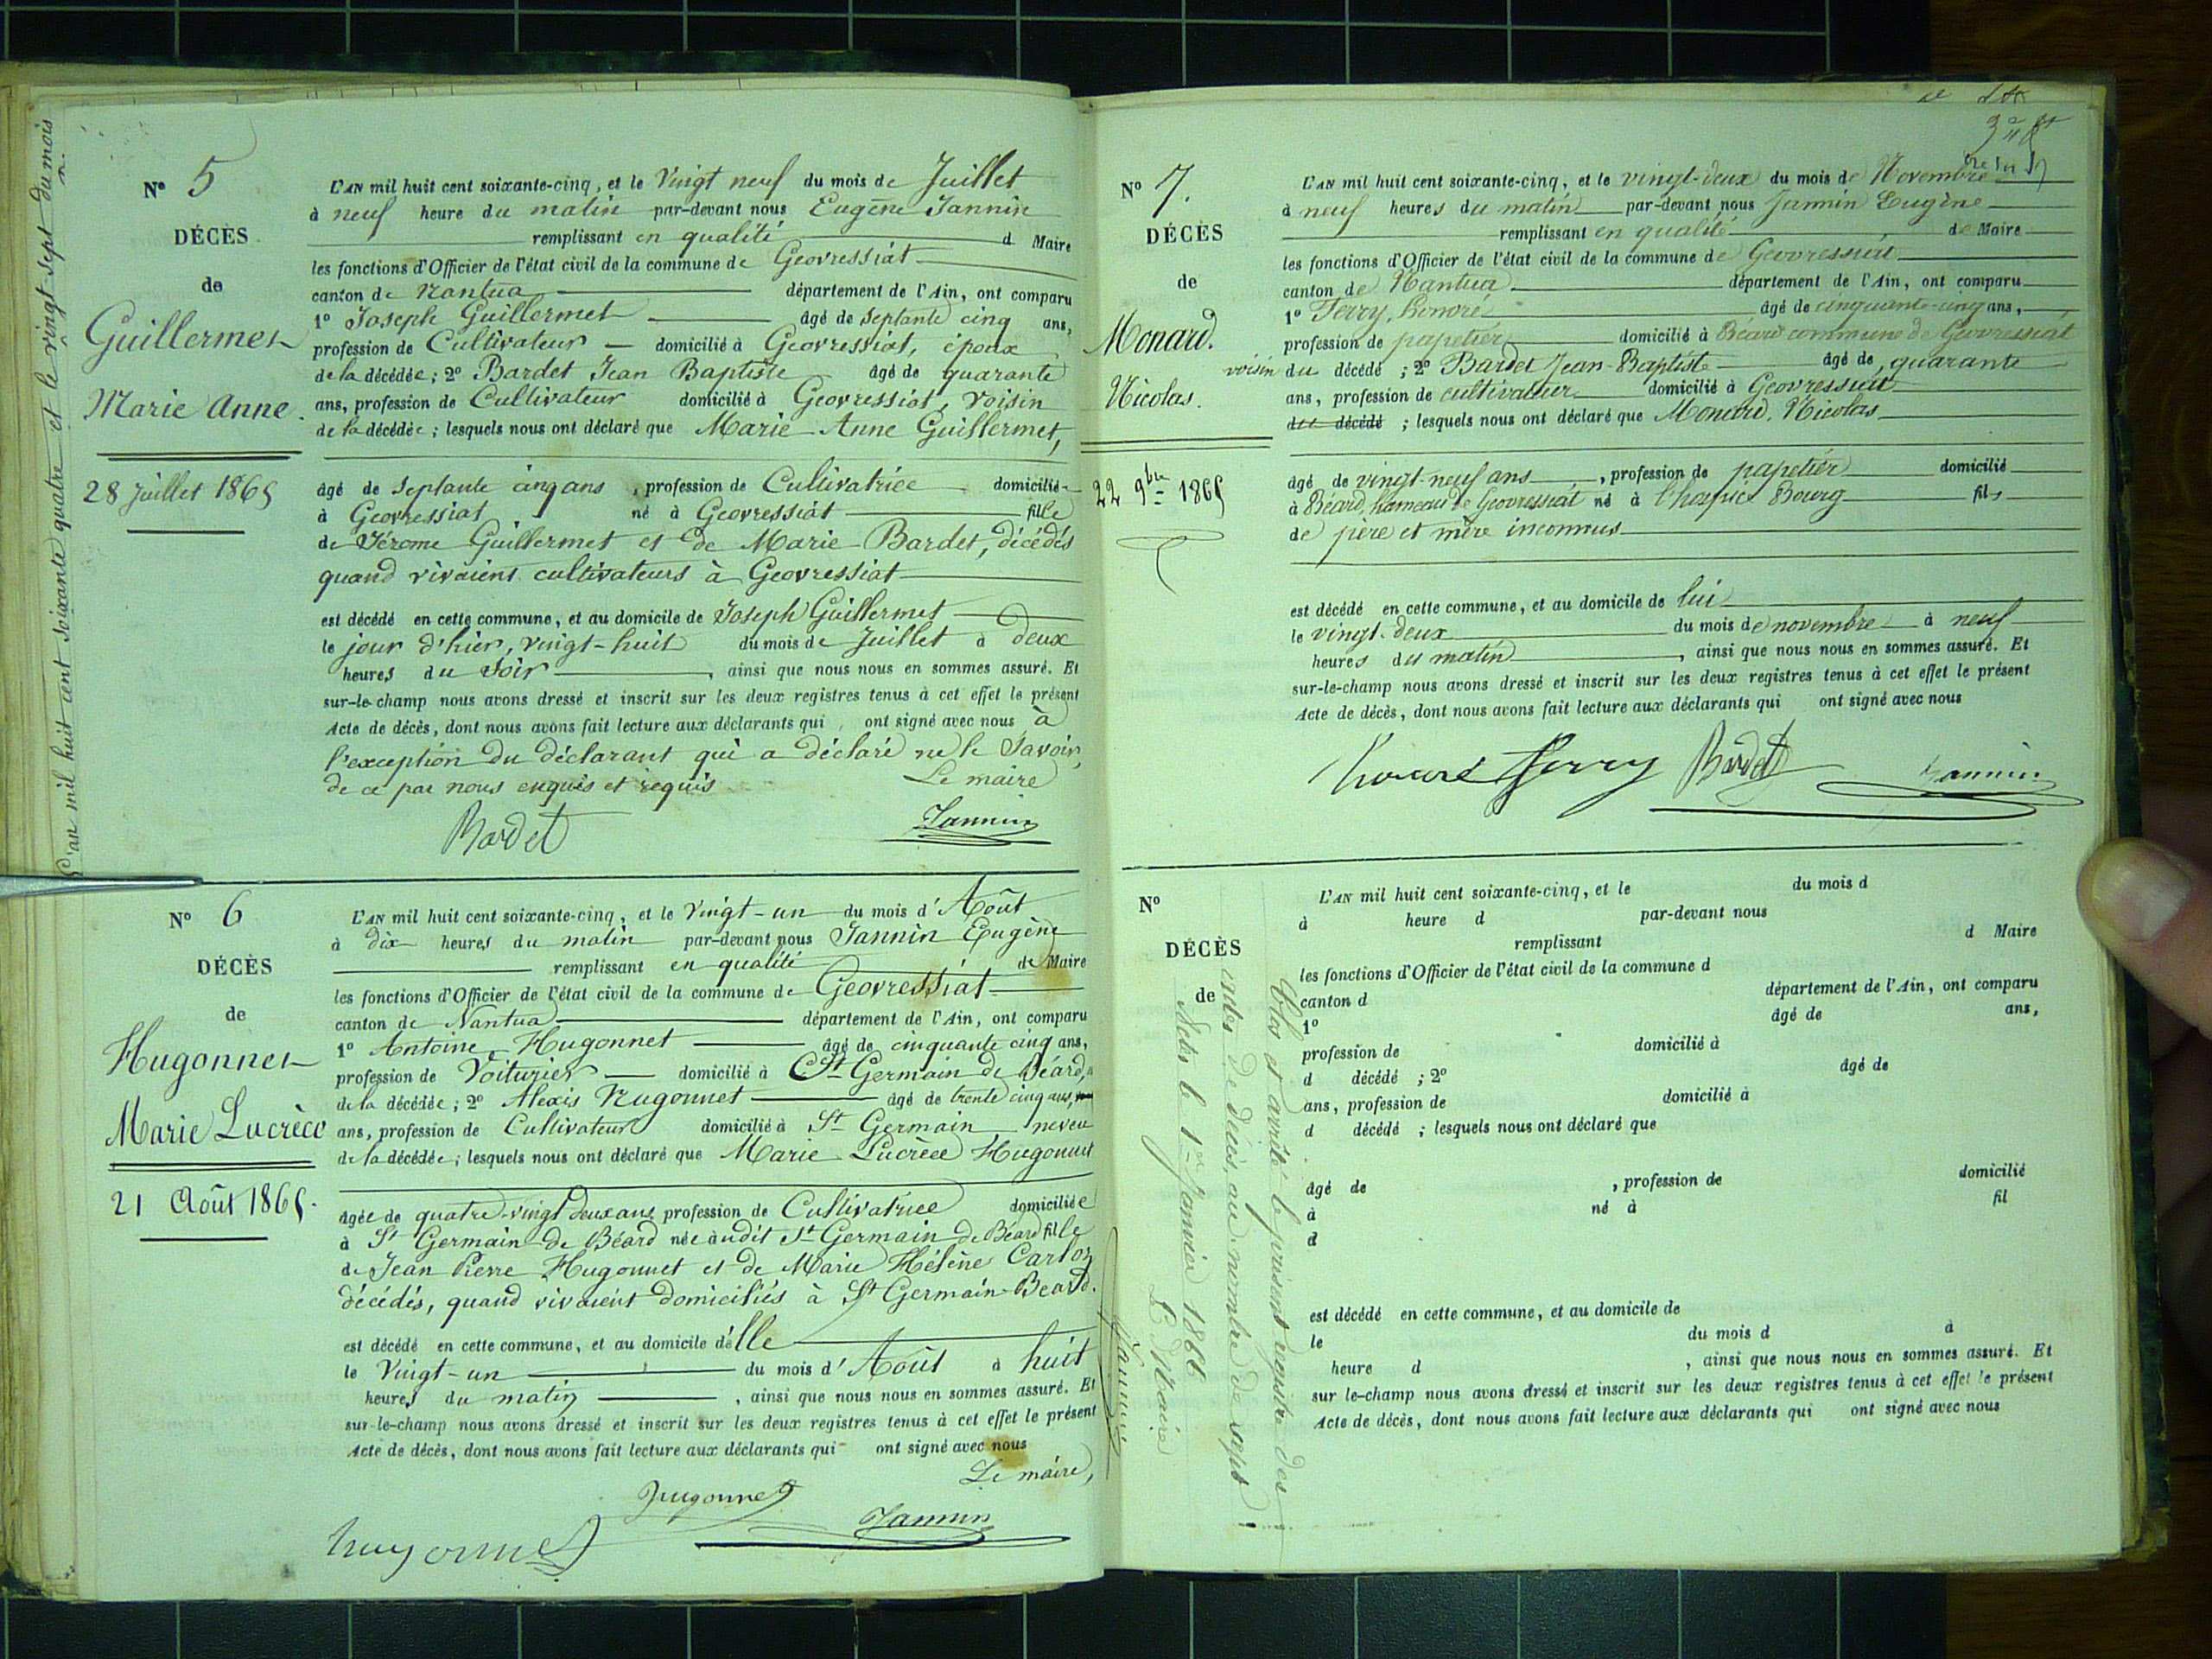 L'an mil huit cent soixante quatre et le vingt-sept du mois
N° 5
DÉCÈS
de
Guillermet
Marie Anne.
28 Juillet 1865
L'AN mil huit cent soixante-cinq, et le Vingt neuf du mois de Juillet
à neuf heure du matin par-devant nous Eugène Jannin
remplissant en qualité d Maire
les fonctions d'Officier de l'état civil de la commune de Geovressiat
canton de Nantua département de l'Ain, ont comparu
1° Joseph Guillermet âgé de Septante cinq ans,
profession de Cultivateur domicilié à Geovressiat, époux
de la décédée; 2° Bardet Jean Baptiste âgé de quarante
ans, profession de Cultivateur domicilié à Geovressiat, voisin
de la décédée; lesquels nous ont déclaré que Marie Anne Guillermet,
âgé de Septante cinq ans, profession de Cultivatrice domicilié
à Geovressiat né à Geovressiat fille
de Jérome Guillermet et de Marie Bardet, décédés
quand vivaient cultivateurs à Geovressiat
est décédé en cette commune, et au domicile de Joseph Guillermet
le jour d'hier, vingt-huit du mois de Juillet à deux
heures du Soir, ainsi que nous nous en sommes assuré. Et
sur-le-champ nous avons dressé et inscrit sur les deux registres tenus à cet effet le présent
Acte de décès, dont nous avons fait lecture aux déclarants qui ont signé avec nous à
l'exception du déclarant qui a déclaré ne le Savoir,
de ce par nous enquis et requis Le maire
Bardet Jannin
N° 6
DÉCÈS
de
Hugonnet
Marie Lucrèce
21 Août 1865.
L'AN mil huit cent soixante-cinq, et le Vingt-un du mois d'Août
à dix heures du matin par-devant nous Jannin Eugène
remplissant en qualité de Maire
les fonctions d'Officier de l'état civil de la commune de Geovressiat
canton de Nantua département de l'Ain, ont comparu
1° Antoine Hugonnet âgé de cinquante cinq ans,
profession de Voiturier domicilié à St Germain de Béard,
de la décédée; 2° Alexis Hugonnet âgé de trente cinq ans,
ans, profession de Cultivateur domicilié à St Germain neveu
de la décédée; lesquels nous ont déclaré que Marie Lucrèce Hugonnet
âgée de quatre-vingt deux ans, profession de Cultivatrice domiciliée
à St Germain de Béard née audit St Germain de Béard fille
de Jean Pierre Hugonnet et de Marie Hélène Carloz
décédés, quand vivaient domiciliés à St Germain-Beard.
est décédé en cette commune, et au domicile d'elle
le Vingt-un du mois d'Août à huit
heures du matin, ainsi que nous nous en sommes assuré. Et
sur-le-champ nous avons dressé et inscrit sur les deux registres tenus à cet effet le présent
Acte de décès, dont nous avons fait lecture aux déclarants qui ont signé avec nous
Le maire,
hugonnet hugonnet Jannin
N° 7.
DÉCÈS
de
Monard.
Nicolas.
22 9bre 1865
L'AN mil huit cent soixante-cinq, et le vingt-deux du mois de Novembre
à neuf heures du matin par-devant nous Jannin Eugène
remplissant en qualité de Maire
les fonctions d'Officier de l'état civil de la commune de Geovressiat
canton de Nantua département de l'Ain, ont comparu
1° Ferry, honoré âgé de cinquante-cinq ans,
profession de papetier domicilié à Béard commune de Geovressiat
voisin du décédé; 2° Bardet Jean-Baptiste âgé de, quarante
ans, profession de cultivateur domicilié à Geovressiat
du décédé; lesquels nous ont déclaré que Monard, Nicolas
âgé de vingt-neuf ans, profession de papetier domicilié
à Béard, hameau de Geovressiat né à l'hospice Bourg fils
de père et mère inconnus
est décédé en cette commune, et au domicile de lui
le vingt-deux du mois de novembre à neuf
heures du matin, ainsi que nous nous en sommes assuré. Et
sur-le-champ nous avons dressé et inscrit sur les deux registres tenus à cet effet le présent
Acte de décès, dont nous avons fait lecture aux déclarants qui ont signé avec nous
honoré ferry Bardet Jannin
N°
DÉCÈS
de
L'AN mil huit cent soixante-cinq, et le du mois d
à heure d par-devant nous
remplissant d Maire
les fonctions d'Officier de l'état civil de la commune d
canton d département de l'Ain, ont comparu
1° âgé de ans,
profession de domicilié à
d décédé ; 2° âgé de
ans, profession de domicilié à
d décédé ; lesquels nous ont déclaré que
âgé de , profession de domicilié
à né à fil
d
est décédé en cette commune, et au domicile de
le du mois d à
heure d , ainsi que nous nous en sommes assuré. Et
sur le-champ nous avons dressé et inscrit sur les deux registres tenus à cet effet le présent
Acte de décès, dont nous avons fait lecture aux déclarants qui ont signé avec nous
Clos et arrêté le présent registre des
actes de décès, au nombre de sept
actes le 1er Janvier 1866
Le Maire
Jannin